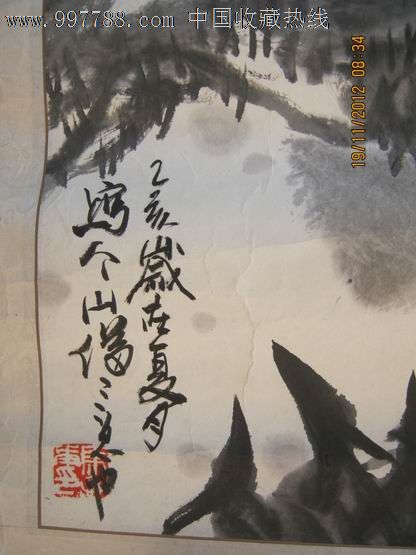 www.997788.com 中国收藏热线
19/11/2012 08:34
乙亥歲在夏月
寫个山僧